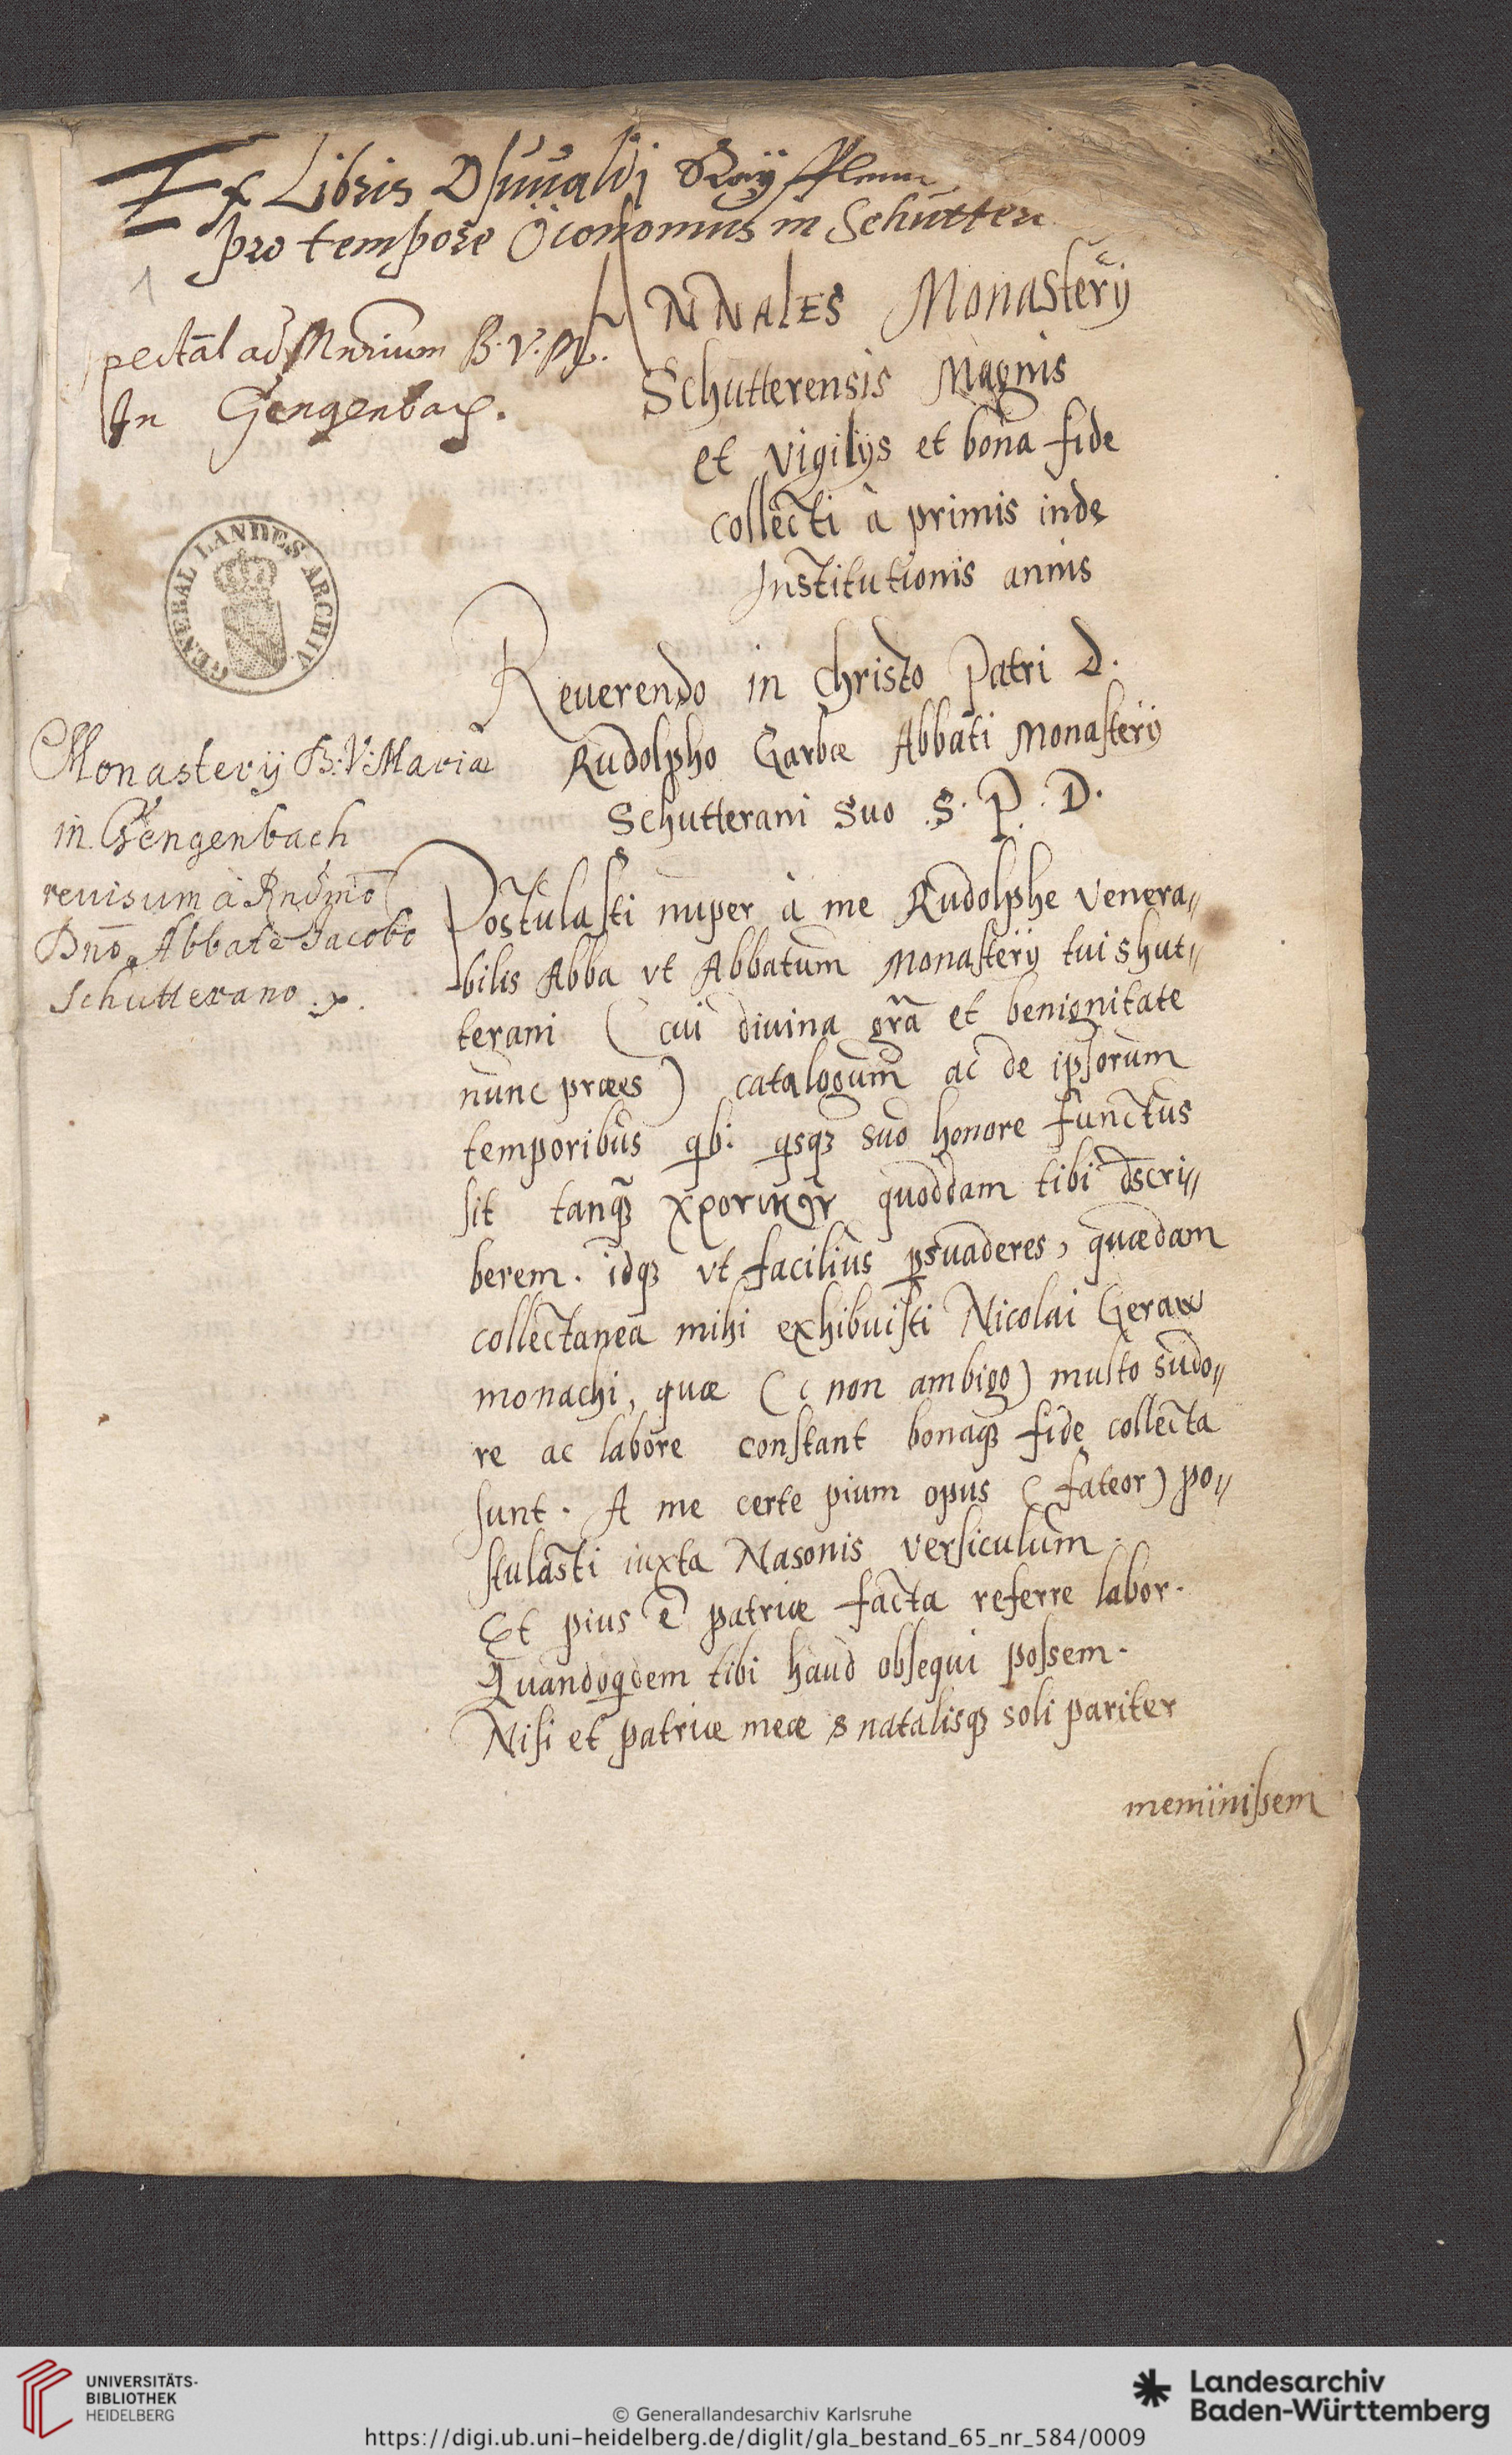 Ex Libris Osuualdi
pro tempore Öconomus in Schuttern
1
spectat ad Mnrium B. V. M.
In Gengenbach.
ANNALES Monasterij
Schutterensis Magnis
et vigilijs et bona fide
collecti à primis inde
Institutionis annis
GENERAL LANDES ARCHIV
Reuerendo in Christo Patri D.
Rudolpho Garbæ Abbati Monasterij
Schutterani suo S. P. D.
Monasterij B. V. Mariæ
in Gengenbach
reuisum à Rndmõ
Dnõ Abbate Jacobo
Schutterano
Postulasti nuper à me Rudolphe venera„
bilis Abba vt Abbatum Monasterij tui shut„
terani (cui diuina grã et benignitate
nunc præes) catalogum ac de ipsorum
temporibus qb: qsqꝫ suo honore functus
sit tanqꝫ quoddam tibi dscri„
berem. idqꝫ vt facilius psuaderes, quædam
collectanea mihi exhibuisti Nicolai Geraw
monachi, quæ (non ambigo) multo sudo„
re ac labore constant bonaqꝫ fide collecta
sunt. A me certe pium opus (fateor) po„
stulasti iuxta Nasonis versiculum.
Et pius ẽ patriæ facta referre labor.
Quandoqdem tibi haud obsequi possem.
Nisi et patriæ meæ & natalisqꝫ soli pariter
meminissem
UNIVERSITÄTS-
BIBLIOTHEK
HEIDELBERG
© Generallandesarchiv Karlsruhe
https://digi.ub.uni-heidelberg.de/diglit/gla_bestand_65_nr_584/0009
Landesarchiv
Baden-Württemberg